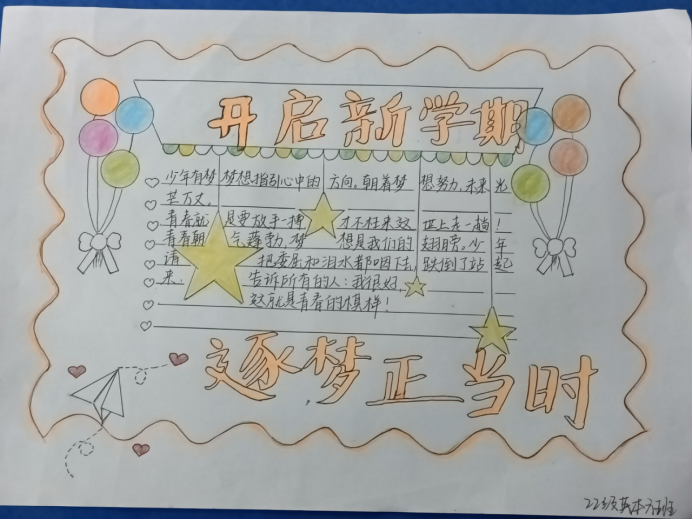 开启新学期
少年有梦 梦想指引心中的 方向。朝着梦 想努力,未来光
芒万丈。
青春就 是要放手一搏 才不枉来这 世上走一趟!
青春朝 气蓬勃,梦 想是我们的 翅膀。少年
请 把委屈和泪水都咽下去,跌倒了站起
来. 告诉所有的人:我很好,
这就是青春的模样!
逐梦正当时
22级英本六班